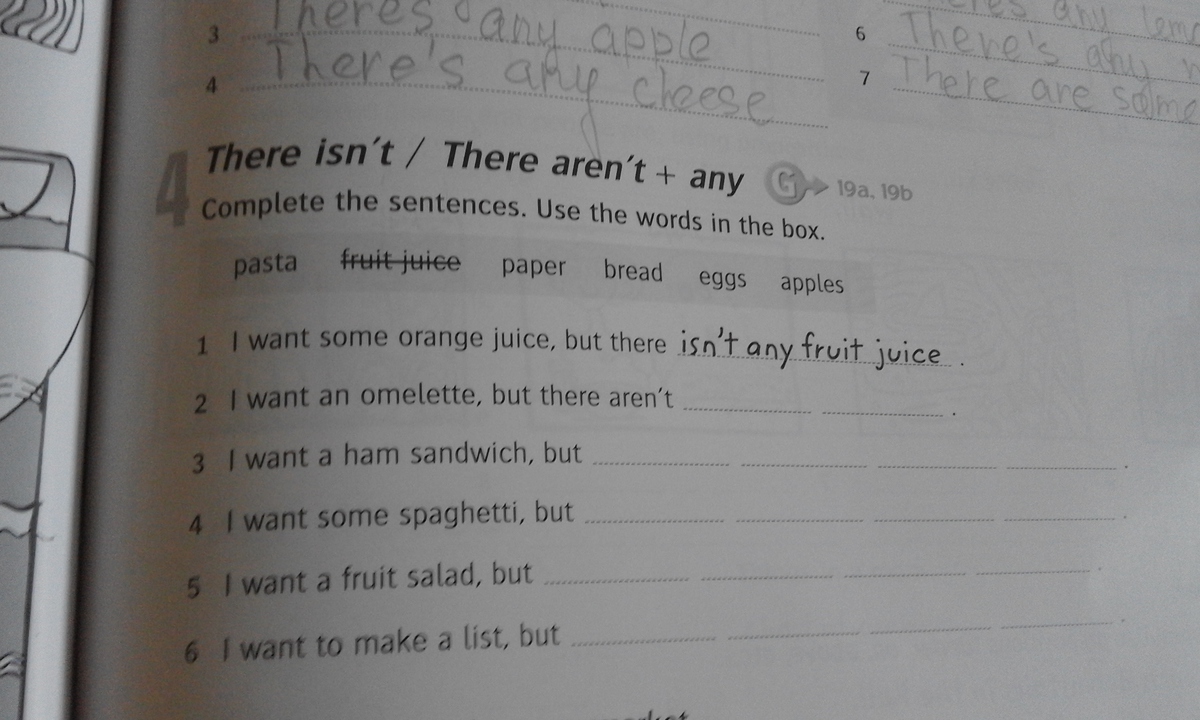 3 There's any apple
6 There's any
4 There's any cheese
7 There are some
4 There isn't / There aren't + any G 19a, 19b
Complete the sentences. Use the words in the box.
pasta fruit juice paper bread eggs apples
1 I want some orange juice, but there isn't any fruit juice .
2 I want an omelette, but there aren't .
3 I want a ham sandwich, but .
4 I want some spaghetti, but .
5 I want a fruit salad, but .
6 I want to make a list, but .